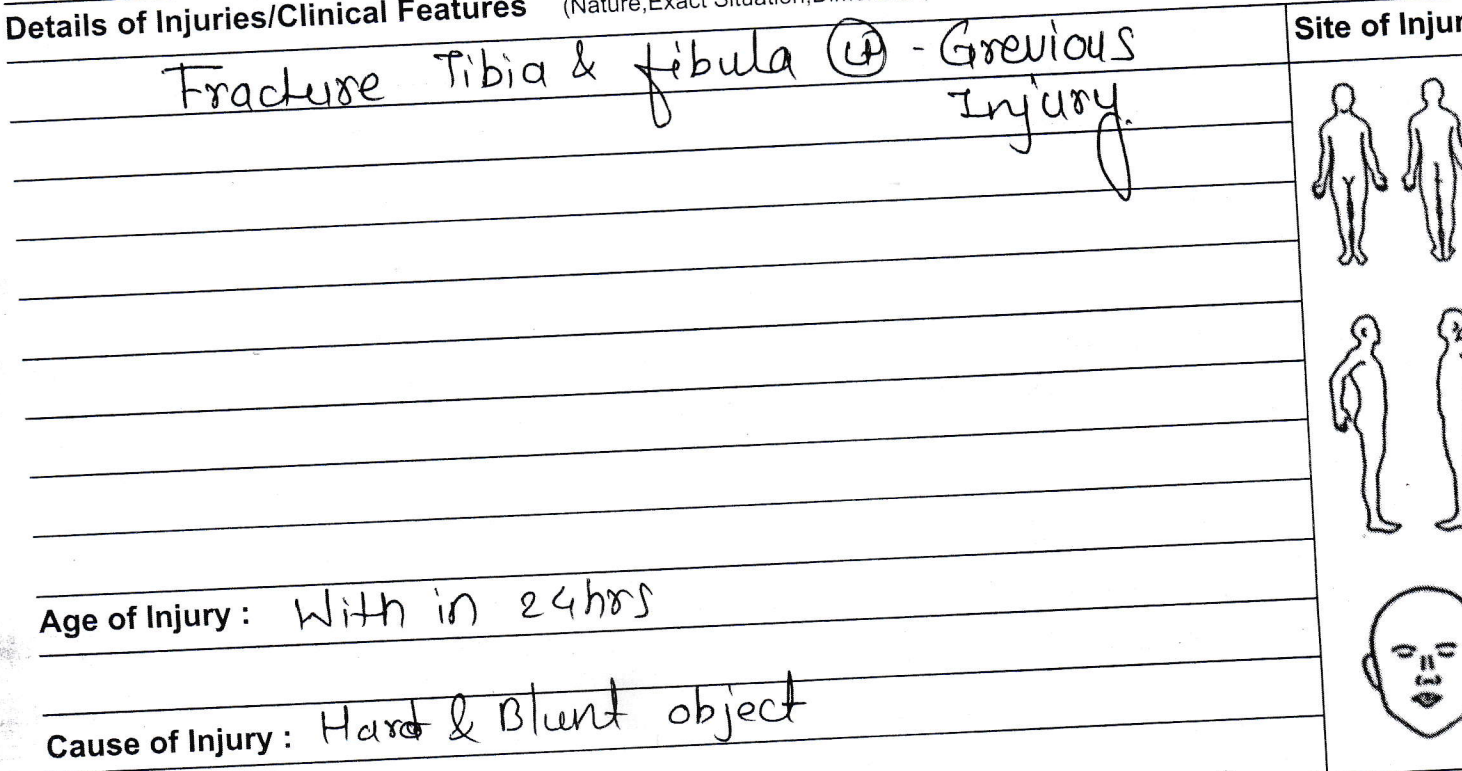 Details of Injuries/Clinical Features (Nature,Exact Situation,
Site of Injur
Fracture Tibia & fibula - Grevious
Injury.
Age of Injury : With in 24hrs
Cause of Injury : Hard & Blunt object